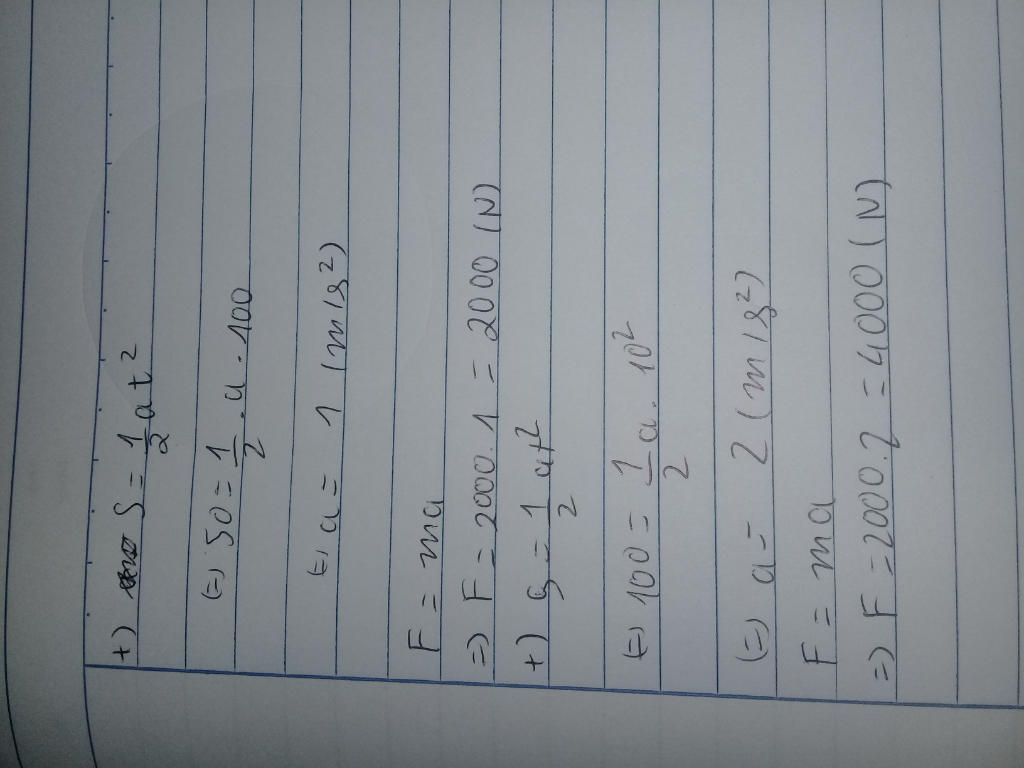 +) S = 1/2 at²
(=) 50 = 1/2 . a . 100
(=) a = 1 (m/s²)
F = ma
=) F = 2000.1 = 2000 (N)
+) S = 1/2 at²
(=) 100 = 1/2 a. 10²
(=) a = 2 (m/s²)
F = ma
=) F = 2000.2 = 4000 (N)